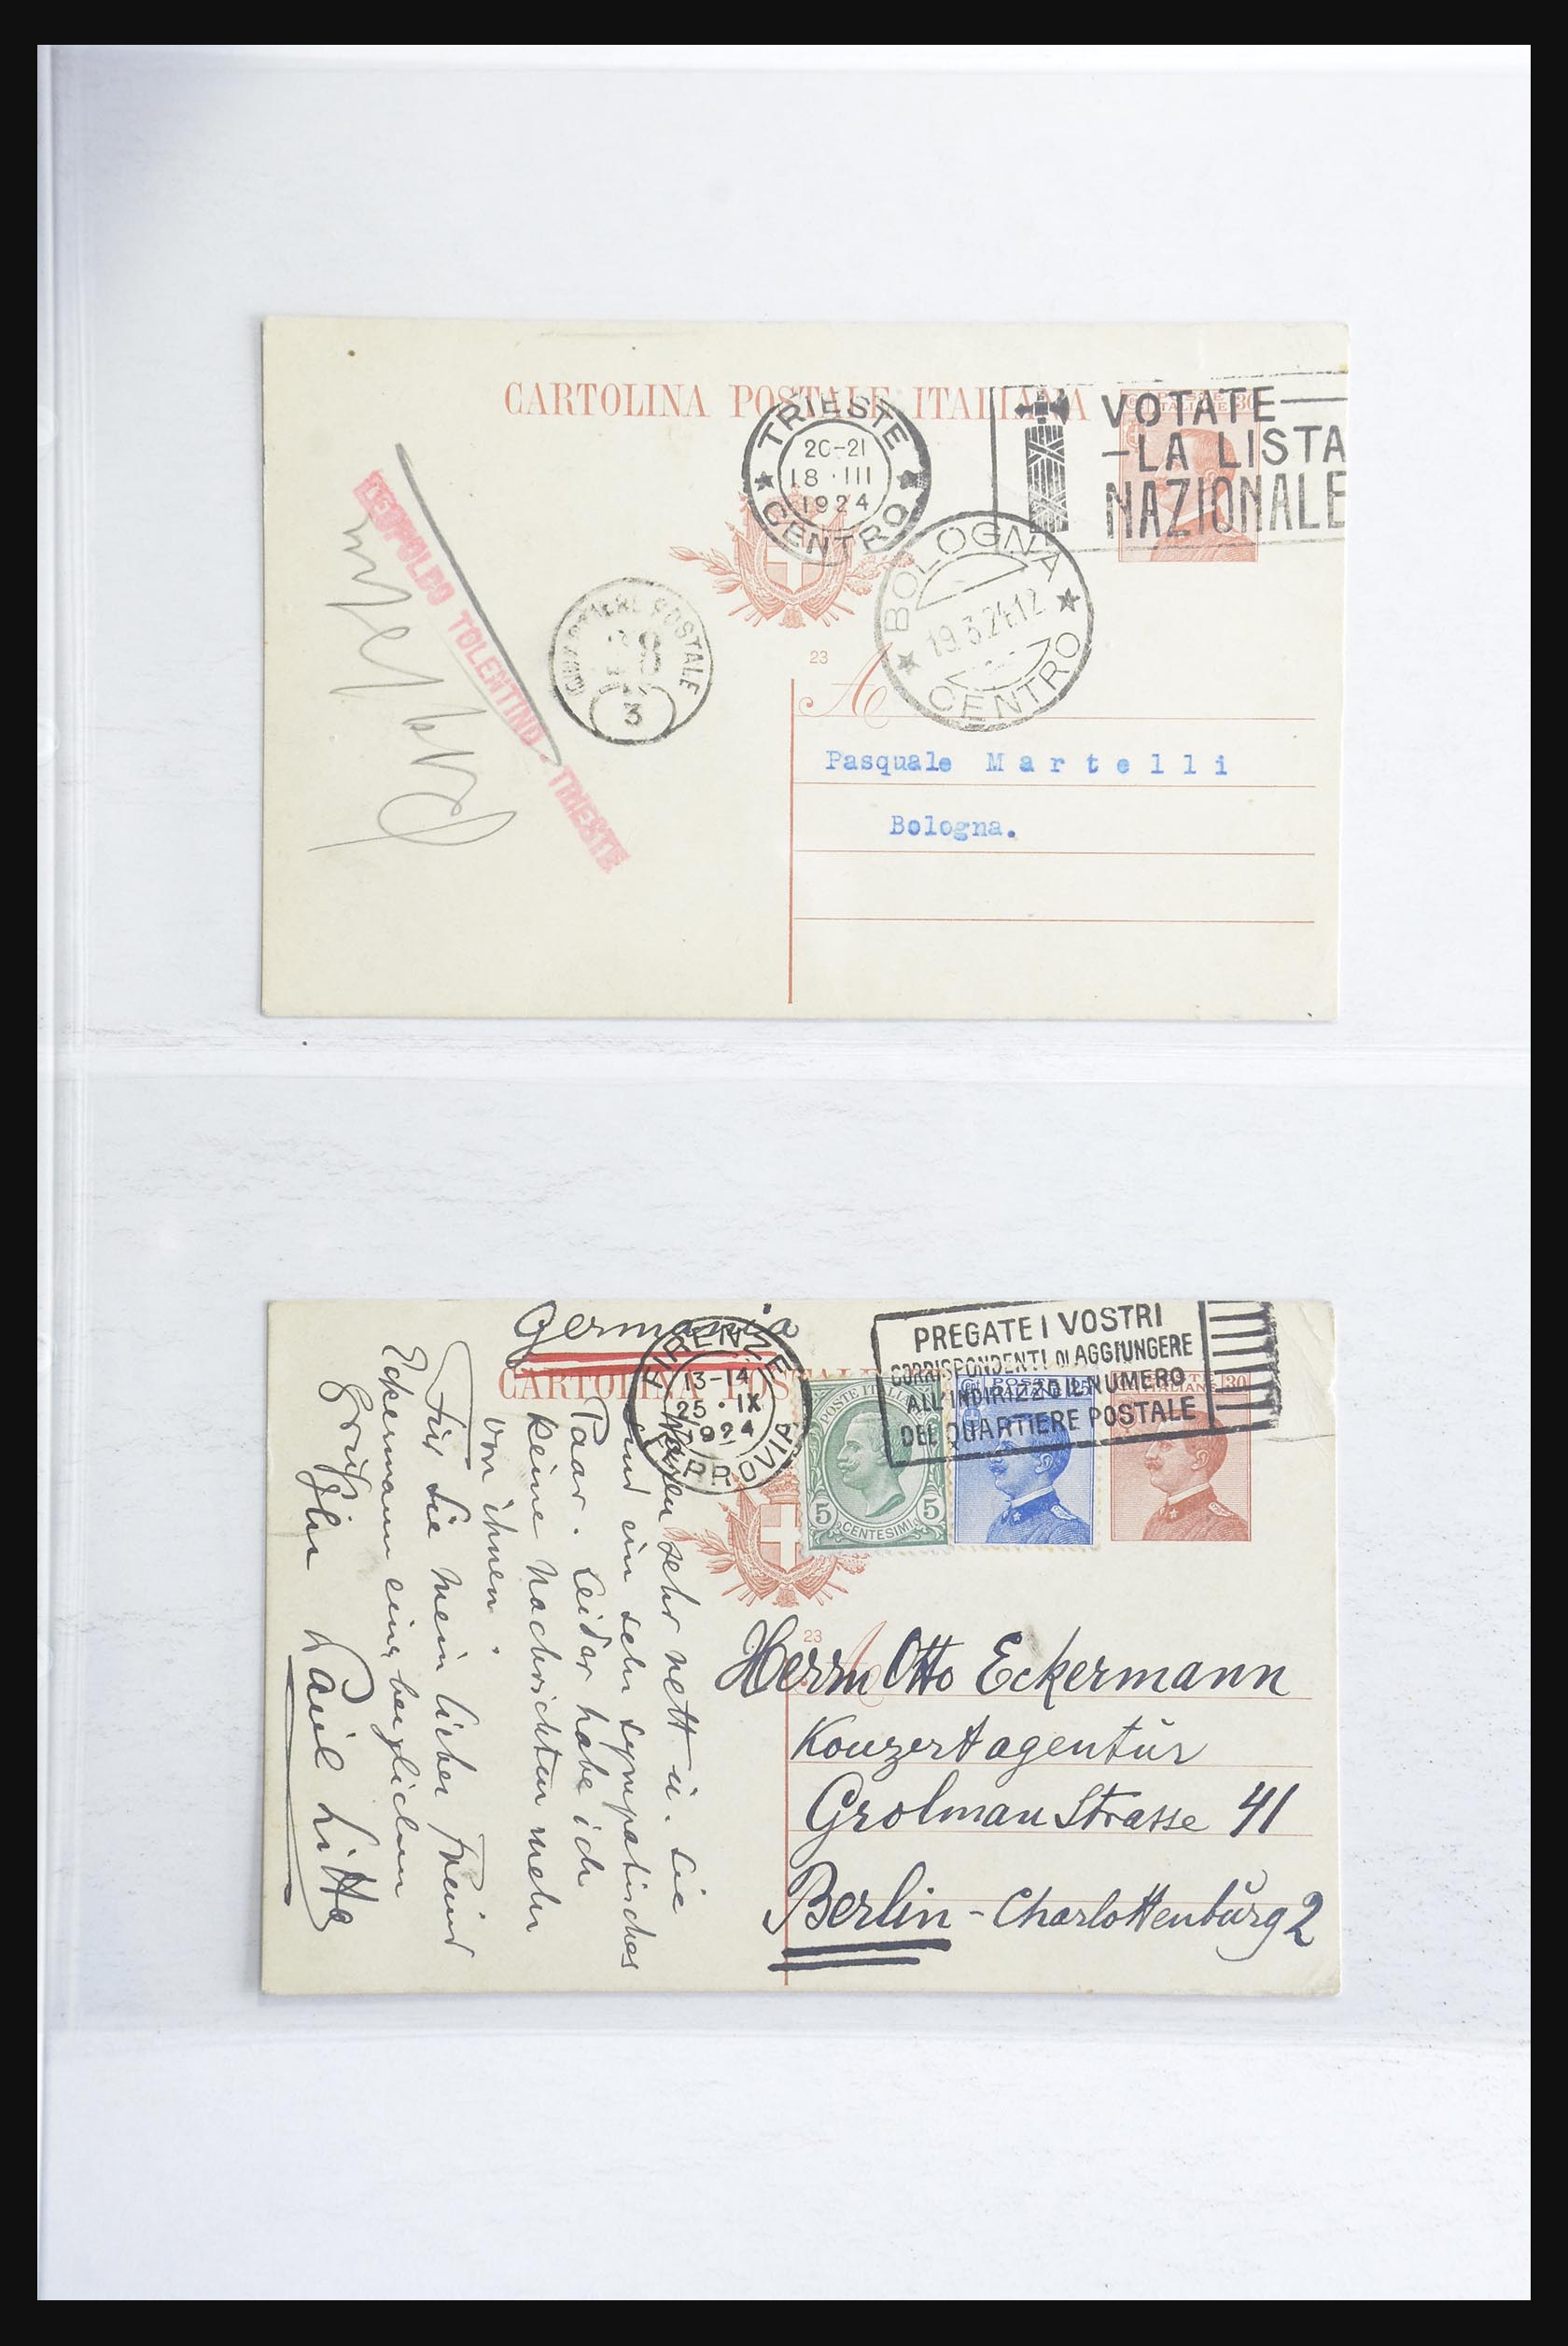 CARTOLINA POSTALE ITALIANA
TRIESTE
20-21
18·III
1924
CENTRO
VOTATE
-LA LISTA
NAZIONALE
30
BOLOGNA
19.3.24.12
CENTRO
LEOPOLDO TOLENTINO - TRIESTE
QUARTIERE POSTALE
3
23
A
Pasquale Martelli
Bologna.
Germania
CARTOLINA POSTALE
FIRENZE
13-14
25·IX
1924
FERROVIA
PREGATE I VOSTRI
CORRISPONDENTI DI AGGIUNGERE
ALL'INDIRIZZO IL NUMERO
DEL QUARTIERE POSTALE
POSTE ITALIANE
5 5
CENTESIMI
30
23
Herrn Otto Eckermann
Konzertagentur
Grolman Strasse 41
Berlin - Charlottenburg 2
waren sehr nett u. sie
sind ein sehr sympatisches
Paar. Leider habe ich
keine Nachrichten mehr
von ihnen.
Für Sie mein lieber Freund
Eckermann einen herzlichen
Gruß Ihr